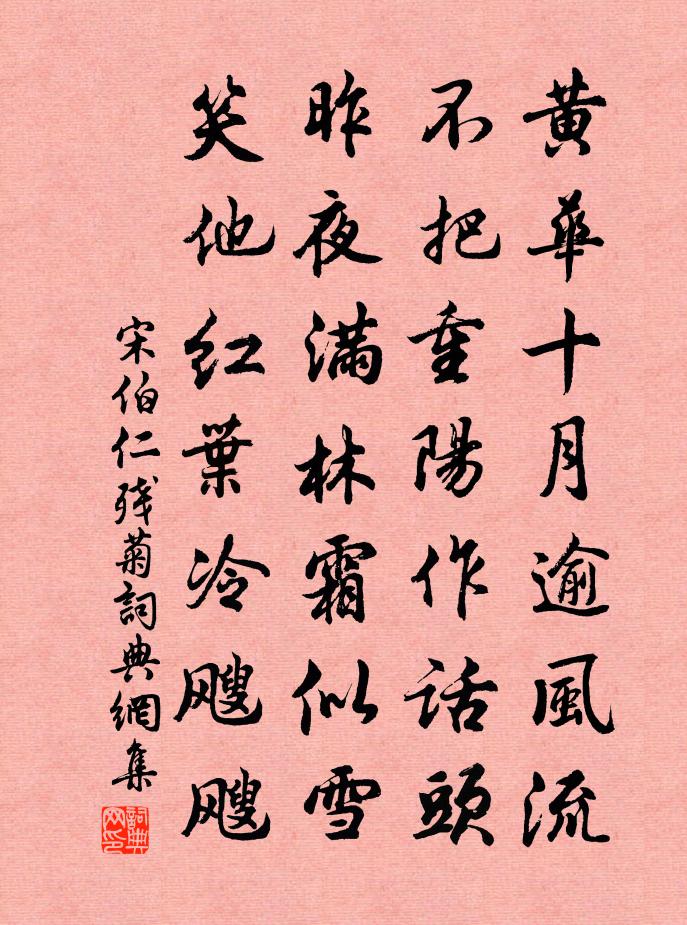 黄華十月逾風流
不把重陽作話頭
昨夜滿林霜似雪
笑他紅葉冷颼颼
宋伯仁残菊詞典網集
詞典网印